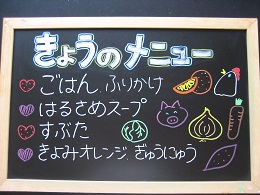 きょうのメニュー
ごはん,ふりかけ
はるさめスープ
すぶた
きよみオレンジ,ぎゅうにゅう